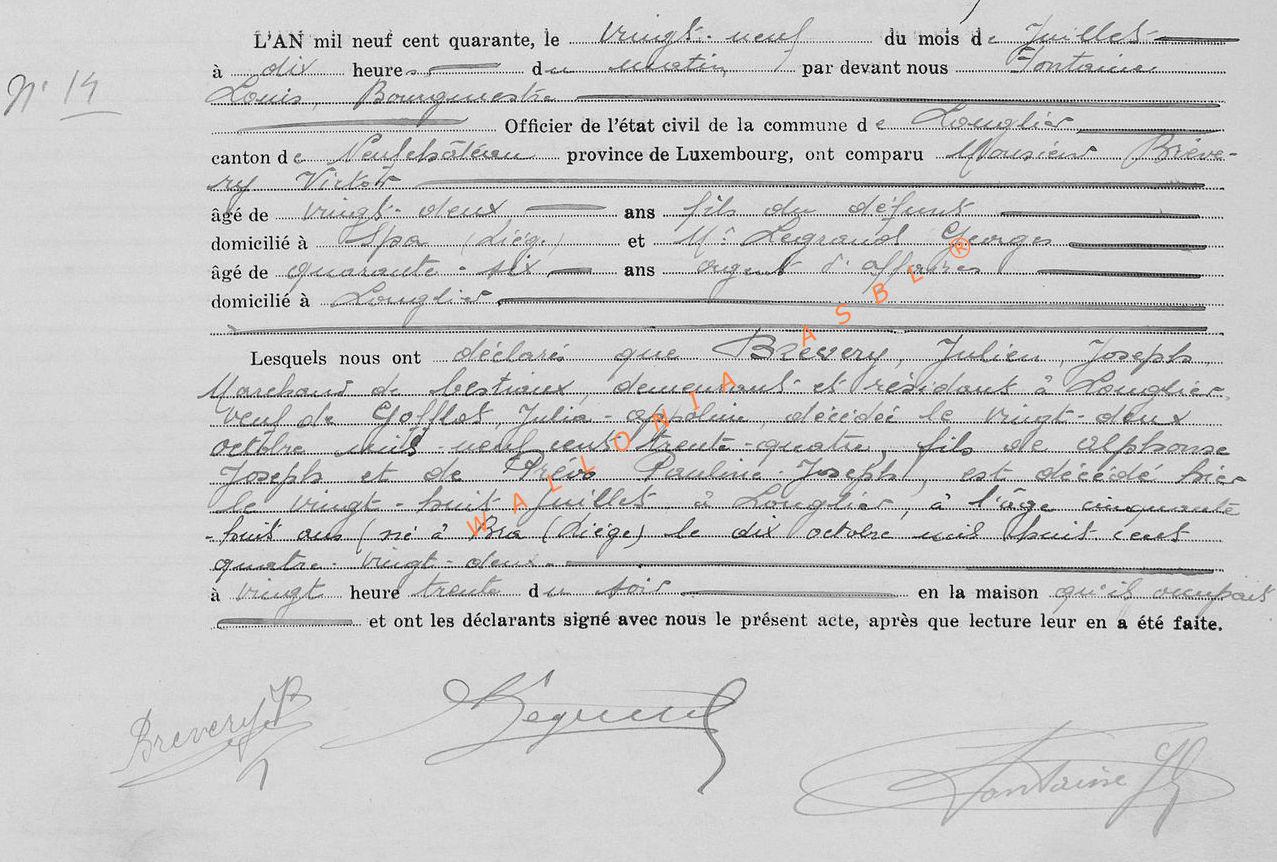 L'AN mil neuf cent quarante, le vingt-neuf du mois de Juillet
N° 14
à dix heures du matin par devant nous Fontaine
Louis, Bourgmestre
Officier de l'état civil de la commune de Longlier
canton de Neufchâteau province de Luxembourg, ont comparu Monsieur Bréve-
ry Victor
âgé de vingt-deux ans fils du défunt
domicilié à Spa (Liége) et Mr Legrand Georges
âgé de quarante-six ans agent d'affaires
domicilié à Longlier
Lesquels nous ont déclaré que Brévery, Julien, Joseph
Marchand de bestiaux, demeurant et résidant à Longlier,
veuf de Gofflot, Julia-appoline, décédée le vingt-deux
octobre mil-neuf cent trente-quatre, fils de alphonse
Joseph et de Prévo Pauline-Joseph, est décédé hier
le vingt-huit Juillet à Longlier, à l'âge cinquante
-huit ans (né à Bra (Liége) le dix octobre mil huit cent
quatre-vingt-deux.
à vingt heure trente du soir en la maison qu'il occupait
et ont les déclarants signé avec nous le présent acte, après que lecture leur en a été faite.
WALLONIA ASBL ®
Brevery V
Legrand
Fontaine